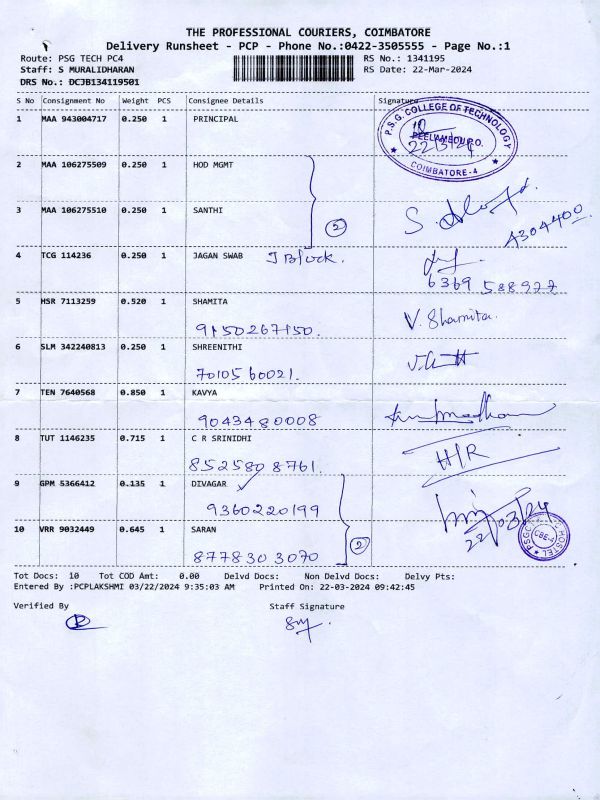 THE PROFESSIONAL COURIERS, COIMBATORE
Delivery Runsheet - PCP - Phone No.:0422-3505555 - Page No.:1
Route: PSG TECH PC4 RS No.: 1341195
Staff: S MURALIDHARAN RS Date: 22-Mar-2024
DRS No.: DCJB134119501
S No Consignment No Weight PCS Consignee Details Signature
1 MAA 943004717 0.250 1 PRINCIPAL
P.S.G. COLLEGE OF TECHNOLOGY
PEELAMEDU P.O.
22/3/24
COIMBATORE-4
2 MAA 106275509 0.250 1 HOD MGMT
3 MAA 106275510 0.250 1 SANTHI
2
4304400
4 TCG 114236 0.250 1 JAGAN SWAB J Block.
6369 588977
5 HSR 7113259 0.520 1 SHAMITA V. Shamita.
9150267150.
6 SLM 342240813 0.250 1 SHREENITHI
7010560021.
7 TEN 7640568 0.850 1 KAVYA
9043480008
8 TUT 1146235 0.715 1 C R SRINIDHI H/R
8525808761.
9 GPM 5366412 0.135 1 DIVAGAR
9360220199
22/03/24
10 VRR 9032449 0.645 1 SARAN
8778303070 2
HOSTEL
CBE-4
Tot Docs: 10 Tot COD Amt: 0.00 Delvd Docs: Non Delvd Docs: Delvy Pts:
Entered By :PCPLAKSHMI 03/22/2024 9:35:03 AM Printed On: 22-03-2024 09:42:45
Verified By Staff Signature